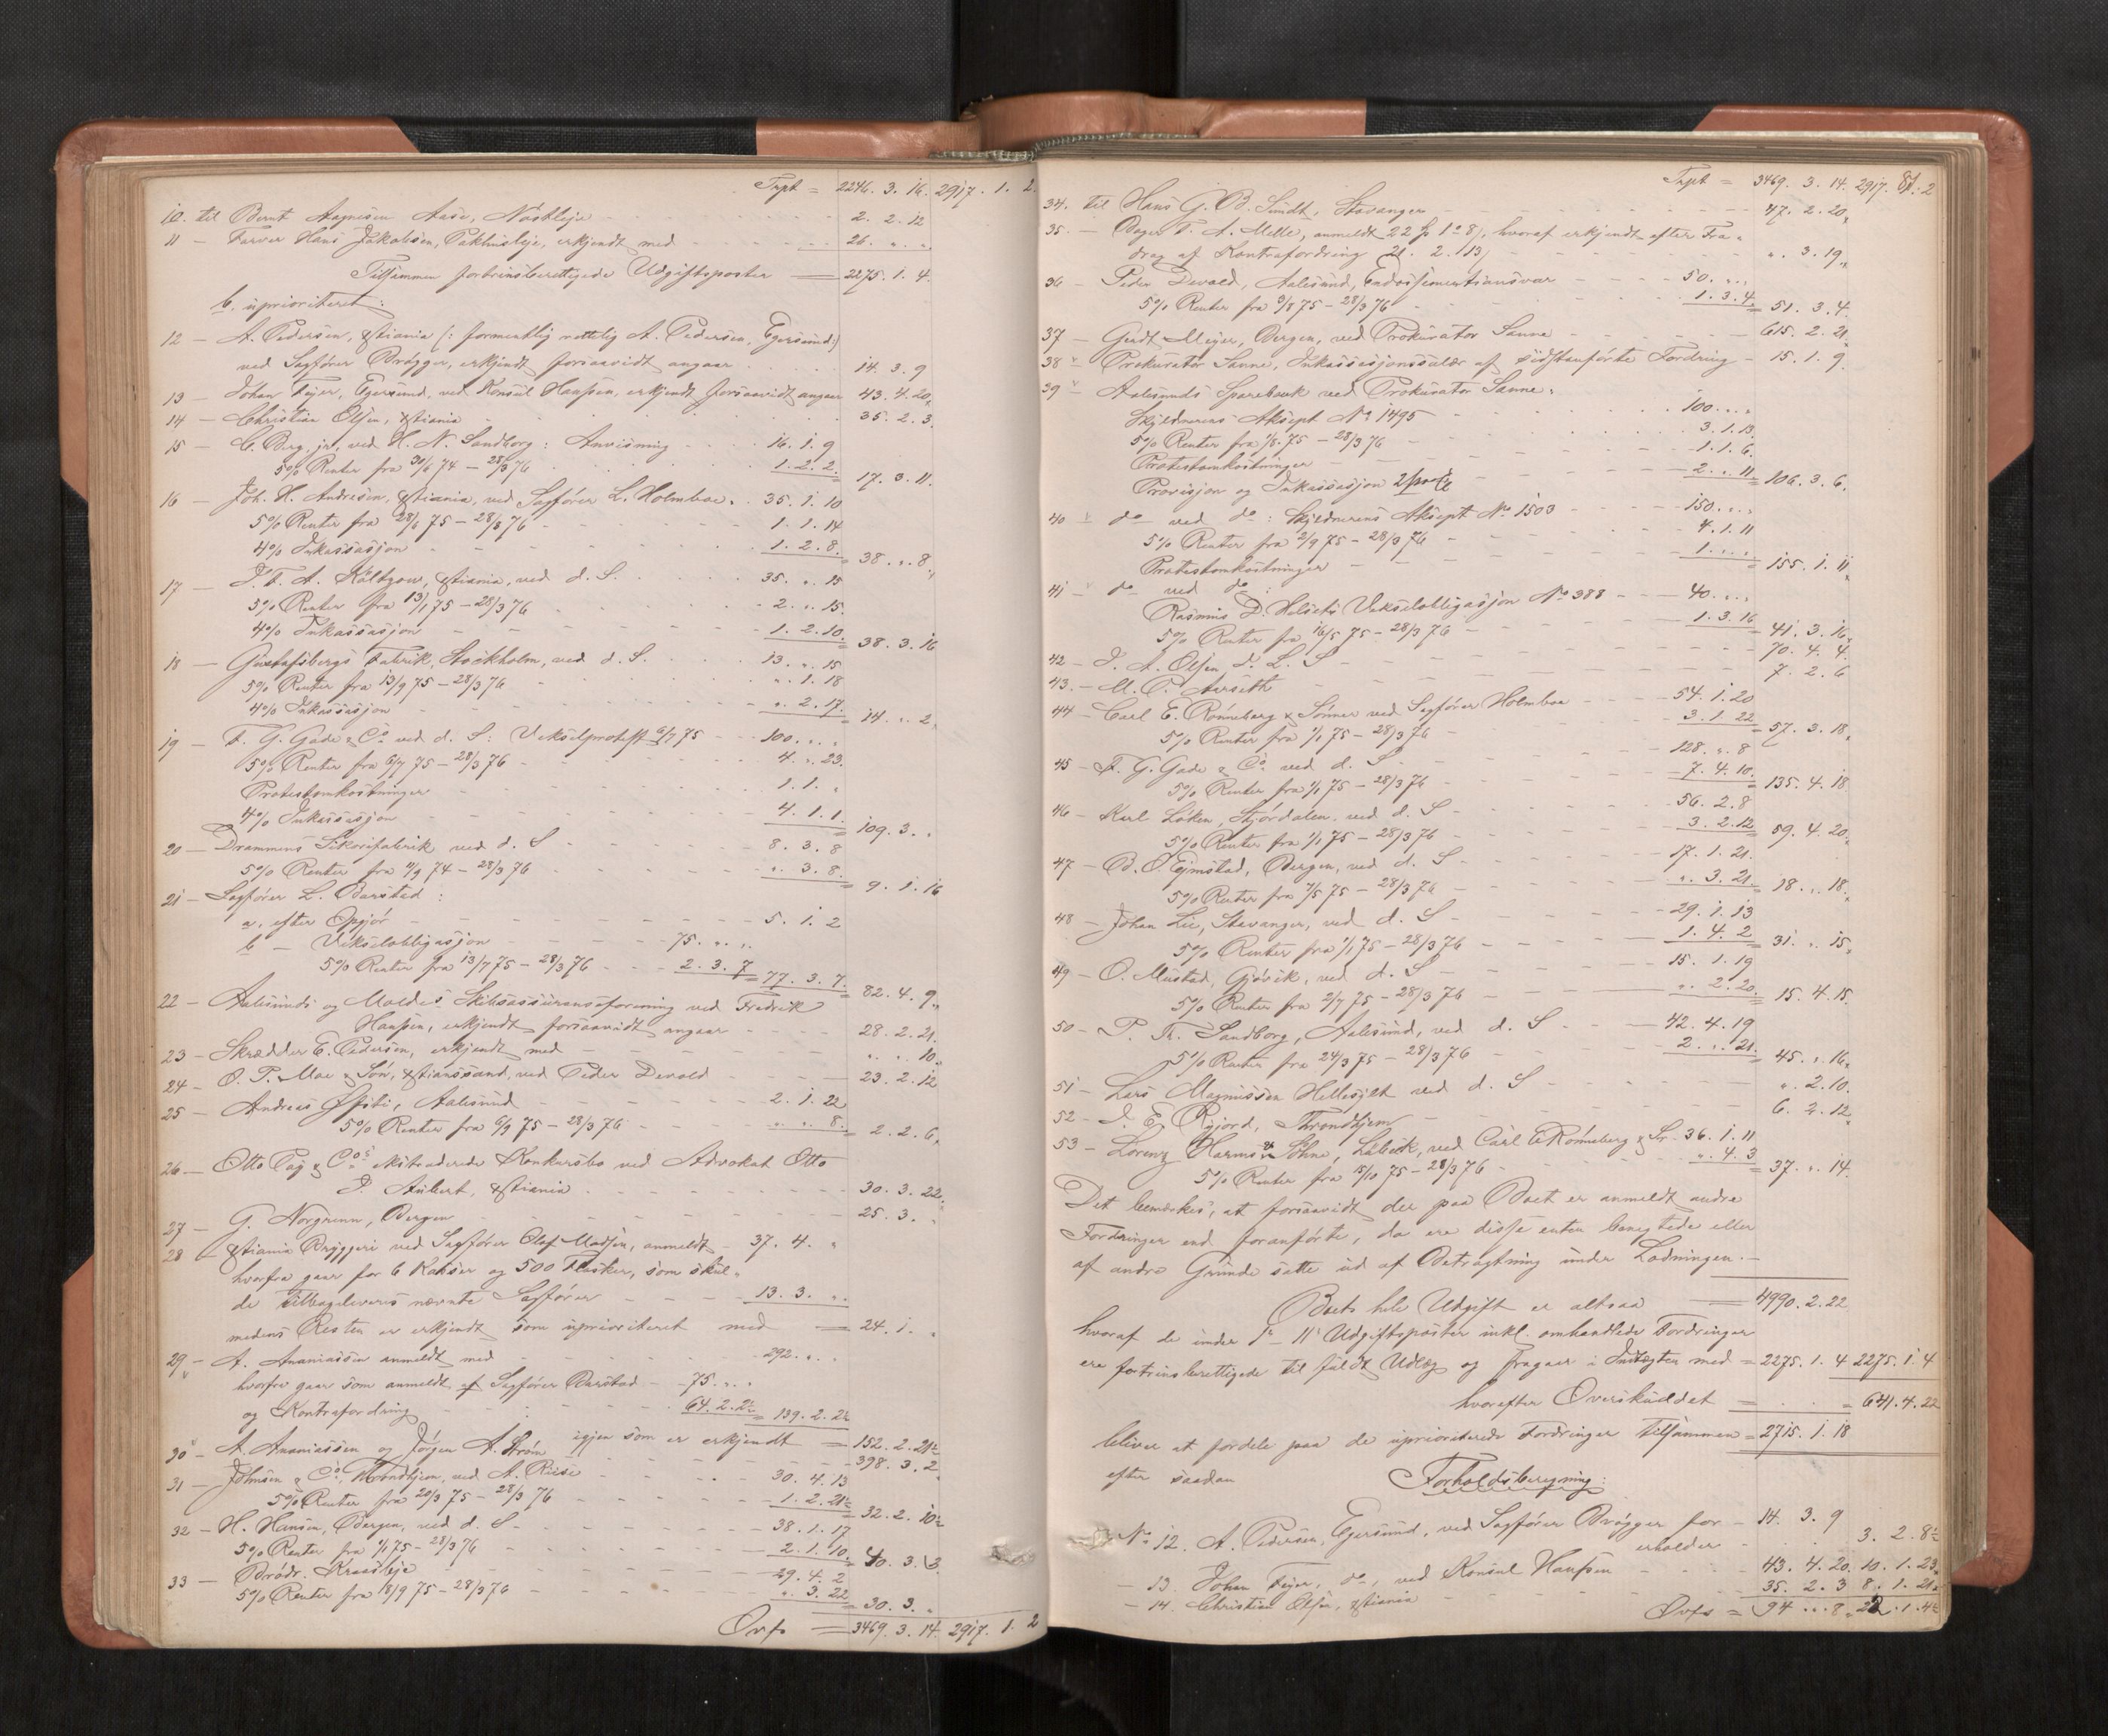 Trpt = 2246. 3. 16. 2917. 1. 2.
10. til Bernt Aagnesen Aase, Nøstleje - - - 2. 2. 12
11 — Farver Hans Jakobsen, Pakhusleje, erkjendt med - - - 26. „ „
Tilsammen fortrinsberettigede Udgiftsposter = 2275. 1. 4.
b. uprioriteret:
12 — A. Pedersen, Xstiania (: formentlig rettelig A. Pedersen, Egersund:)
ved Sagfører Brøgger, erkjendt forsaavidt angaar - - - 14. 3. 9
13 — Johan Fejer, Egersund, ved Konsul Hanssen, erkjendt forsaavidt angaar 43. 4. 20„
14 — Christian Olsen, Xstiania - - - 35. 2. 3.
15 — C. Berg jr, ved H. N. Sandborg: Anvisning - - - 16. 1. 9
5% Renter fra 30/6 74 — 28/3 76 - - - 1. 2. 2. = 17. 3. 11.
16 — Joh. H. Andresen, Xstiania, ved Sagfører L. Holmboe. 35. 1. 10
5% Renter fra 28/6 75 — 28/3 76 - - - 1. 1. 14
4% Inkassasjon - - - 1. 2. 8. = 38. „ 8„
17 — J. F. A. Költzow, Xstiania, ved d. S. - - - 35. „ 15
5% Renter fra 13/1 75 — 28/3 76 - - - 2. „ 15.
4% Inkassasjon - - - 1. 2. 10. = 38. 3. 16
18 — Gustafsbergs Fabrik, Stockholm, ved d. S. - - - 13. „ 15
5% Renter fra 13/9 75 — 28/3 76 - - - „ 1. 18
4% Inkassasjon - - - „ 2. 17. = 14. „ 2.
19 — F. G. Gade & Co ved d. S: Vekselprotest 6/7 75 - - 100. „ „
5% Renter fra 6/7 75 — 28/3 76 - - - 4. „ 23.
Protestomkostninger - - - 1. 1. „
4% Inkassasjon - - - 4. 1. 1. = 109. 3. „
20 — Drammens Sikorifabrik ved d. S - - - 8. 3. 8
5% Renter fra 4/9 74 — 28/3 76 - - - „ 3. 8. = 9. 1. 16
21 — Sagfører L. Barstad:
a, efter Opgjør - - - 5. 1. 2
b — Vekselobligasjon - - - 75. „ „
5% Renter fra 13/7 75 — 28/3 76 - - - 2. 3. 7 = 77. 3. 7. = 82. 4. 9„
22 — Aalesunds og Moldes Skibsassuranseforening ved Fredrik
Hanssen, erkjendt forsaavidt angaar - - - 28. 2. 21.
23 — Skrædder E. Pedersen, erkjendt med - - - „ „ 10„
24 — O. P. Moe & Søn, Xstianssand, ved Peder Devold - - - 23. 2. 12
25 — Andreas, Aalesund - - - 2. 1. 22
5% Renter fra 6/9 75 — 28/3 76 - - - „ „ 8. = 2. 2. 6.
26 — Otto Fay & Co's ekstraderede Konkursbo ved Advokat Otto
J. Aubert, Xstiania - - - 30. 3. 22.
27 — G. Norgrenn, Bergen - - - 25. 3. „
28 — Xstiania Bryggeri ved Sagfører Olaf Madsen, anmeldt - 37. 4. „
hvorfra gaar for 6 Kasser og 500 Flasker, som skul„
de tilbageleveres nævnte Sagfører - - - 13. 3. „
medens Resten er erkjendt som uprioriteret med = 24. 1. „
29 — A. Ananiassen anmeldt med - - - 292. „ „
hvorfra gaar som anmeldt af Sagfører Barstad - - 75. „ „
og Kontrafordring - - - 64. 2. 2½ = 139. 2. 2½
igjen som er erkjendt = 152. 2. 21½
30 — A. Ananiassen og Jørgen A. Strøm - - - 398. 3. 2
31 — Johnsen & Co, Trondhjem, ved A. Riise - - - 30. 4. 13
5% Renter fra 20/3 75 — 28/3 76 - - - 1. 2. 21½ = 32. 2. 10½
32 — H. Hansen, Bergen, ved d. S - - - 38. 1. 17
5% Renter fra 1/1 75 — 28/3 76 - - - 2. 1. 10. = 40. 3. 3
33 — Brødr. Kraasleje - - - 29. 4. 2
5% Renter fra 18/9 75 — 28/3 76 - - - „ 3. 22 = 30. 3. „
Ovf. = 3469. 3. 14. 2917. 1. 2
Trpt = 3469. 3. 14. 2917. 1. 2
81.
34. til Hans G. B. Sundt, Stavanger - - - 47. 2. 20„
35. — Bager T. A. Melle, anmeldt 22 Sp 1 8, hvoraf erkjendt efter Fra„
drag af Kontrafordring 21. 2. 13) - - - „ 3. 19„
36 — Peder Devold, Aalesund, Endossementsansvar - - - 50. „ „
5% Renter fra 9/8 75 — 28/3 76 - - - 1. 3. 4. = 51. 3. 4.
37 — Gerdt Meyer, Bergen, ved Prokurator Sanne - - - 615. 2. 21.
38 — Prokurator Sanne, Inkassasjonssalær af sidstanførte Fordring - 15. 1. 9.
39 — Aalesunds Sparebank ved Prokurator Sanne:
Skyldnerens Aksept No 1495 - - - 100. „ „
5% Renter fra 1/8 75 — 28/3 76 - - - 3. 1. 13.
Protestomkostninger - - - 1. 1. 6.
Provisjon og Inkassasjon 2 pCt - - - 2. „ 11. = 106. 3. 6.
40 — do ved do: Skyldnerens Aksept No 1503 - - - 150. „ „
5% Renter fra 2/9 75 — 28/3 76 - - - 4. 1. 11
Protestomkostninger - - - 1. „ „ = 155. 1. 11
41 — do ved do:
Rasmus D. Helsets Vekselobligasjon No 388 - - - 40. „ „
5% Renter fra 16/5 75 — 28/3 76 - - - 1. 3. 16 = 41. 3. 16„
42 — J. A. Olsen d. L. S - - - 70. 4. 4.
43. — M. P. Aarseth - - - 7. 2. 6
44 — Carl E. Rønneberg & Sønner ved Sagfører Holmboe - - - 54. 1. 20
5% Renter fra 1/1 75 — 28/3 76 - - - 3. 1. 22 = 57. 3. 18„
45 — F. G. Gade & Co ved d. S - - - 128. „ 8
5% Renter fra 1/1 75 — 28/3 76 - - - 7. 4. 10. = 135. 4. 18
46 — Karl Løken, Stjørdalen, ved d. S - - - 56. 2. 8
5% Renter fra 1/1 75 — 28/3 76 - - - 3. 2. 12 = 59. 4. 20„
47 — B. Ejmstad, Bergen, ved d. S - - - 17. 1. 21.
5% Renter fra 7/5 75 — 28/3 76 - - - „ 3. 21. = 18. „ 18.
48 — Johan Lie, Stavanger, ved d. S - - - 29. 1. 13
5% Renter fra 1/1 75 — 28/3 76 - - - 1. 4. 2 = 31. „ 15„
49 — O. Mustad, Gjøvik, ved d. S - - - 15. 1. 19
5% Renter fra 2/7 75 — 28/3 76 - - - „ 2. 20. = 15. 4. 15.
50 — P. Th. Sandborg, Aalesund, ved d. S - - - 42. 4. 19
5% Renter fra 24/3 75 — 28/3 76 - - - 2. „ 21. = 45. „ 16„
51 — Lars Magnussen Hellesylt ved d. S - - - „ 2. 10.
52 — J. E. Rjjord, Throndhjem - - - 6. 2. 12„
53 — Lorenz Harms & Söhne, Lübeck, ved Carl E Rønneberg & Sr. 36. 1. 11
5% Renter fra 15/10 75 — 28/3 76 - - - „ 4. 3 = 37. „ 14.
Det bemærkes, at forsaavidt der paa Boet er anmeldt andre
Fordringer end foranførte, da ere disse enten benegtede eller
af andre Grunde satte ud af Betragtning under Lodningen. —
Boets hele Udgift er altsaa = 4990. 2. 22
hvoraf de under 1 — 11 Udgiftsposter inkl. omhandlede Fordringer
ere fortrinsberettigede til fuldt Udlæg og fragaar i Indtægten med = 2275. 1. 4 2275. 1. 4
hvorefter Overskuddet = 641. 4. 22
bliver at fordele paa de uprioriterede Fordringer tilsammen = 2715. 1. 18
efter saadan Forholdsberegning:
No 12. A. Pedersen, Egersund, ved Sagfører Brøgger for - 14. 3. 9
erholder - - - 3. 2. 8½
— 13. Johan Fejer, do, ved Konsul Hanssen - - - 43. 4. 20. 10. 1. 23„
— 14. Christian Olsen, Xstiania - - - 35. 2. 3 8. 1. 21„
Ovf. = 94. „ 8„ 22. 1. 4½